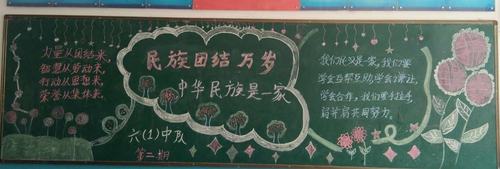 力量从团结来,
智慧从劳动来,
行动从思想来,
荣誉从集体来.
民族团结万岁
中华民族是一家
六(1)中队
第二期
我们永义是一家,我们要
学会互帮互助,学会谦让,
学会合作,我们要手拉手,
肩并肩共同努力.